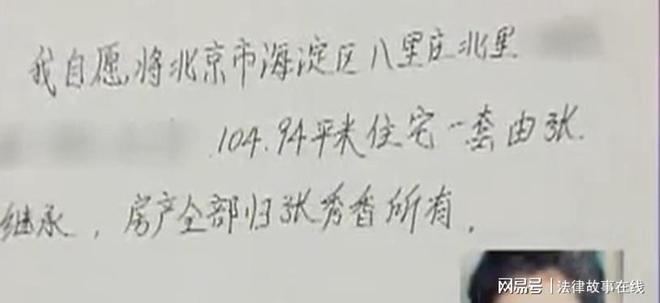 我自愿将北京市海淀区八里庄北里
104.94平米住宅一套由张
继承，房产全部归张秀香所有。
网易号 | 法律故事在线